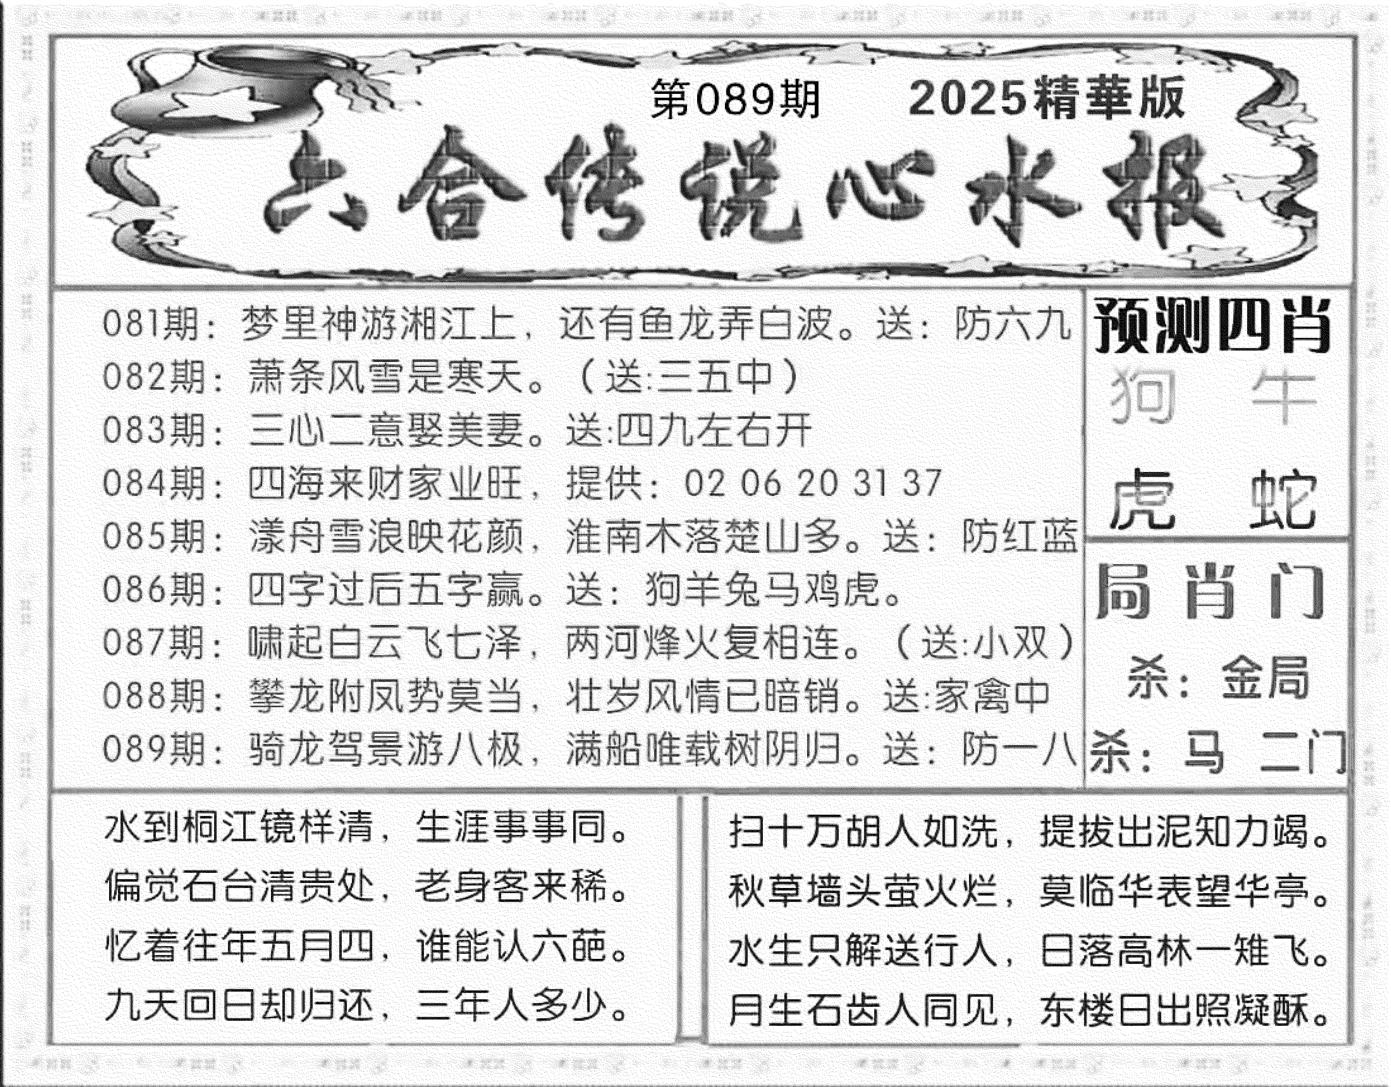 第089期 2025精華版
六合传说心水报
081期：梦里神游湘江上，还有鱼龙弄白波。送：防六九
082期：萧条风雪是寒天。（送:三五中）
083期：三心二意娶美妻。送:四九左右开
084期：四海来财家业旺，提供：02 06 20 31 37
085期：漾舟雪浪映花颜，淮南木落楚山多。送：防红蓝
086期：四字过后五字赢。送：狗羊兔马鸡虎。
087期：啸起白云飞七泽，两河烽火复相连。（送:小双）
088期：攀龙附凤势莫当，壮岁风情已暗销。送:家禽中
089期：骑龙驾景游八极，满船唯载树阴归。送：防一八
预测四肖
狗 牛
虎 蛇
局肖门
杀：金局
杀：马 二门
水到桐江镜样清，生涯事事同。
偏觉石台清贵处，老身客来稀。
忆着往年五月四，谁能认六葩。
九天回日却归还，三年人多少。
扫十万胡人如洗，提拔出泥知力竭。
秋草墙头萤火烂，莫临华表望华亭。
水生只解送行人，日落高林一雉飞。
月生石齿人同见，东楼日出照凝酥。